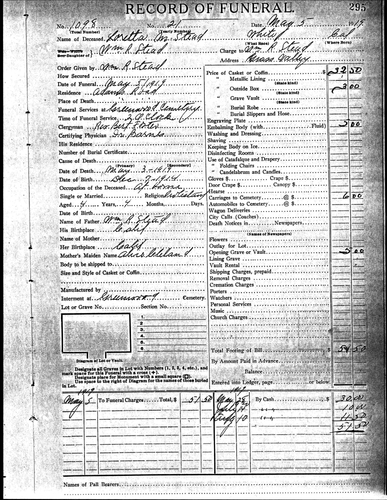 RECORD OF FUNERAL. 295
No. 1098 No. 21 Date, May 3 1919
(Total Number) (Yearly Number)
Name of Deceased, Loretta Stead White Cal
(What Race) (Where Born)
Daughter of Wm R Stead
Charge to Wm R. Stead
Address, Grass Valley
Order Given by Wm R Stead
How Secured
Date of Funeral May 5 1919
Residence
Place of Death,
Funeral Services at Greenwood Cemetery
Time of Funeral Service, 2 O'Clock
Clergyman Rev.
Certifying Physician, Dr Barnes
His Residence
Number of Burial Certificate,
Cause of Death,
(Primary) (Secondary)
Date of Death May 3 1919
Date of Birth Dec 7 1914
Occupation of the Deceased At Home
Single or Married Religion Protestant
Aged 4 Years, 4 Months, Days.
Name of Father Wm R Stead
His Birthplace Calif
Name of Mother,
Her Birthplace Calif
Mother's Maiden Name Cleland
Body to be shipped to
Size and Style of Casket or Coffin,
Manufactured by
Interment at Greenwood Cemetery.
Lot or Grave No. Section No.
Diagram of Lot or Vault.
Designate all Graves in Lot with Numbers (1, 2, 3, 4, etc.), and
mark space for this Funeral with a cross (+)
Designate place for Monument with a small square
Use space to the right of Diagram for the names of those buried
in Lot.
Price of Casket or Coffin $ 32 50
(State kind)
Metallic Lining
(State kind)
Outside Box 3 00
(State kind)
Grave Vault
(State kind)
Burial Robe
Burial Slippers and Hose
Engraving Plate
Embalming Body (with Fluid) 5 00
Washing and Dressing
Shaving
Keeping Body on Ice
Disinfecting Rooms
Use of Catafalque and Drapery
" Folding Chairs
" Candelabrum and Candles
Gloves $ Crape $
Door Crape $ Canopy $
Hearse
Carriages to Cemetery @ $ 6 00
Automobiles to Cemetery @ $
Wagon Deliveries
City Calls (Coaches)
Death Notices in Newspapers
(Names of Newspapers)
Flowers
Outlay for Lot
Opening Grave or Vault 5 00
Lining Grave
Vault Rental
Shipping Charges, prepaid
Removal Charges
Cremation Charges
Porters
Watchers
Personal Services
Music
Church Charges
Total Footing of Bill $ 51 50
By Amount Paid in Advance
Balance
Entered into Ledger, page or below
1919
May 5 To Funeral Charges, Total, $ 51 50
By Cash 30 00
July 10 00
11 50
51 50
Names of Pall Bearers,